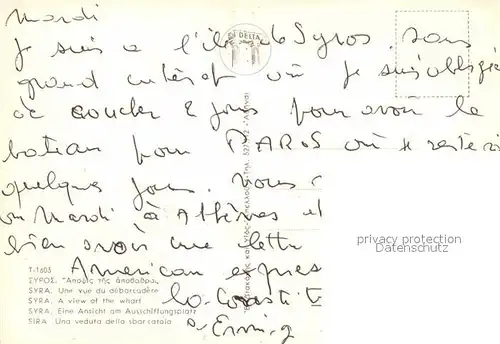 Mardi
Je suis a l'île de Syros sans
grand intérêt où je suis obligé
de coucher 2 jours pour avoir le
bateau pour PAROS où je resterai
quelques jours. Nous
Mardi à Athènes et
bien avoir une lettre
American express
DELTA
privacy protection
delcampe.net
T-1603
ΣΥΡΟΣ. Ἄποψις τῆς ἀποβάθρας
SYRA. Une vue du débarcadère
SYRA. A view of the wharf
SYRA. Eine Ansicht am Ausschiffungsplatz
SIRA. Una veduta della sbarcatoia